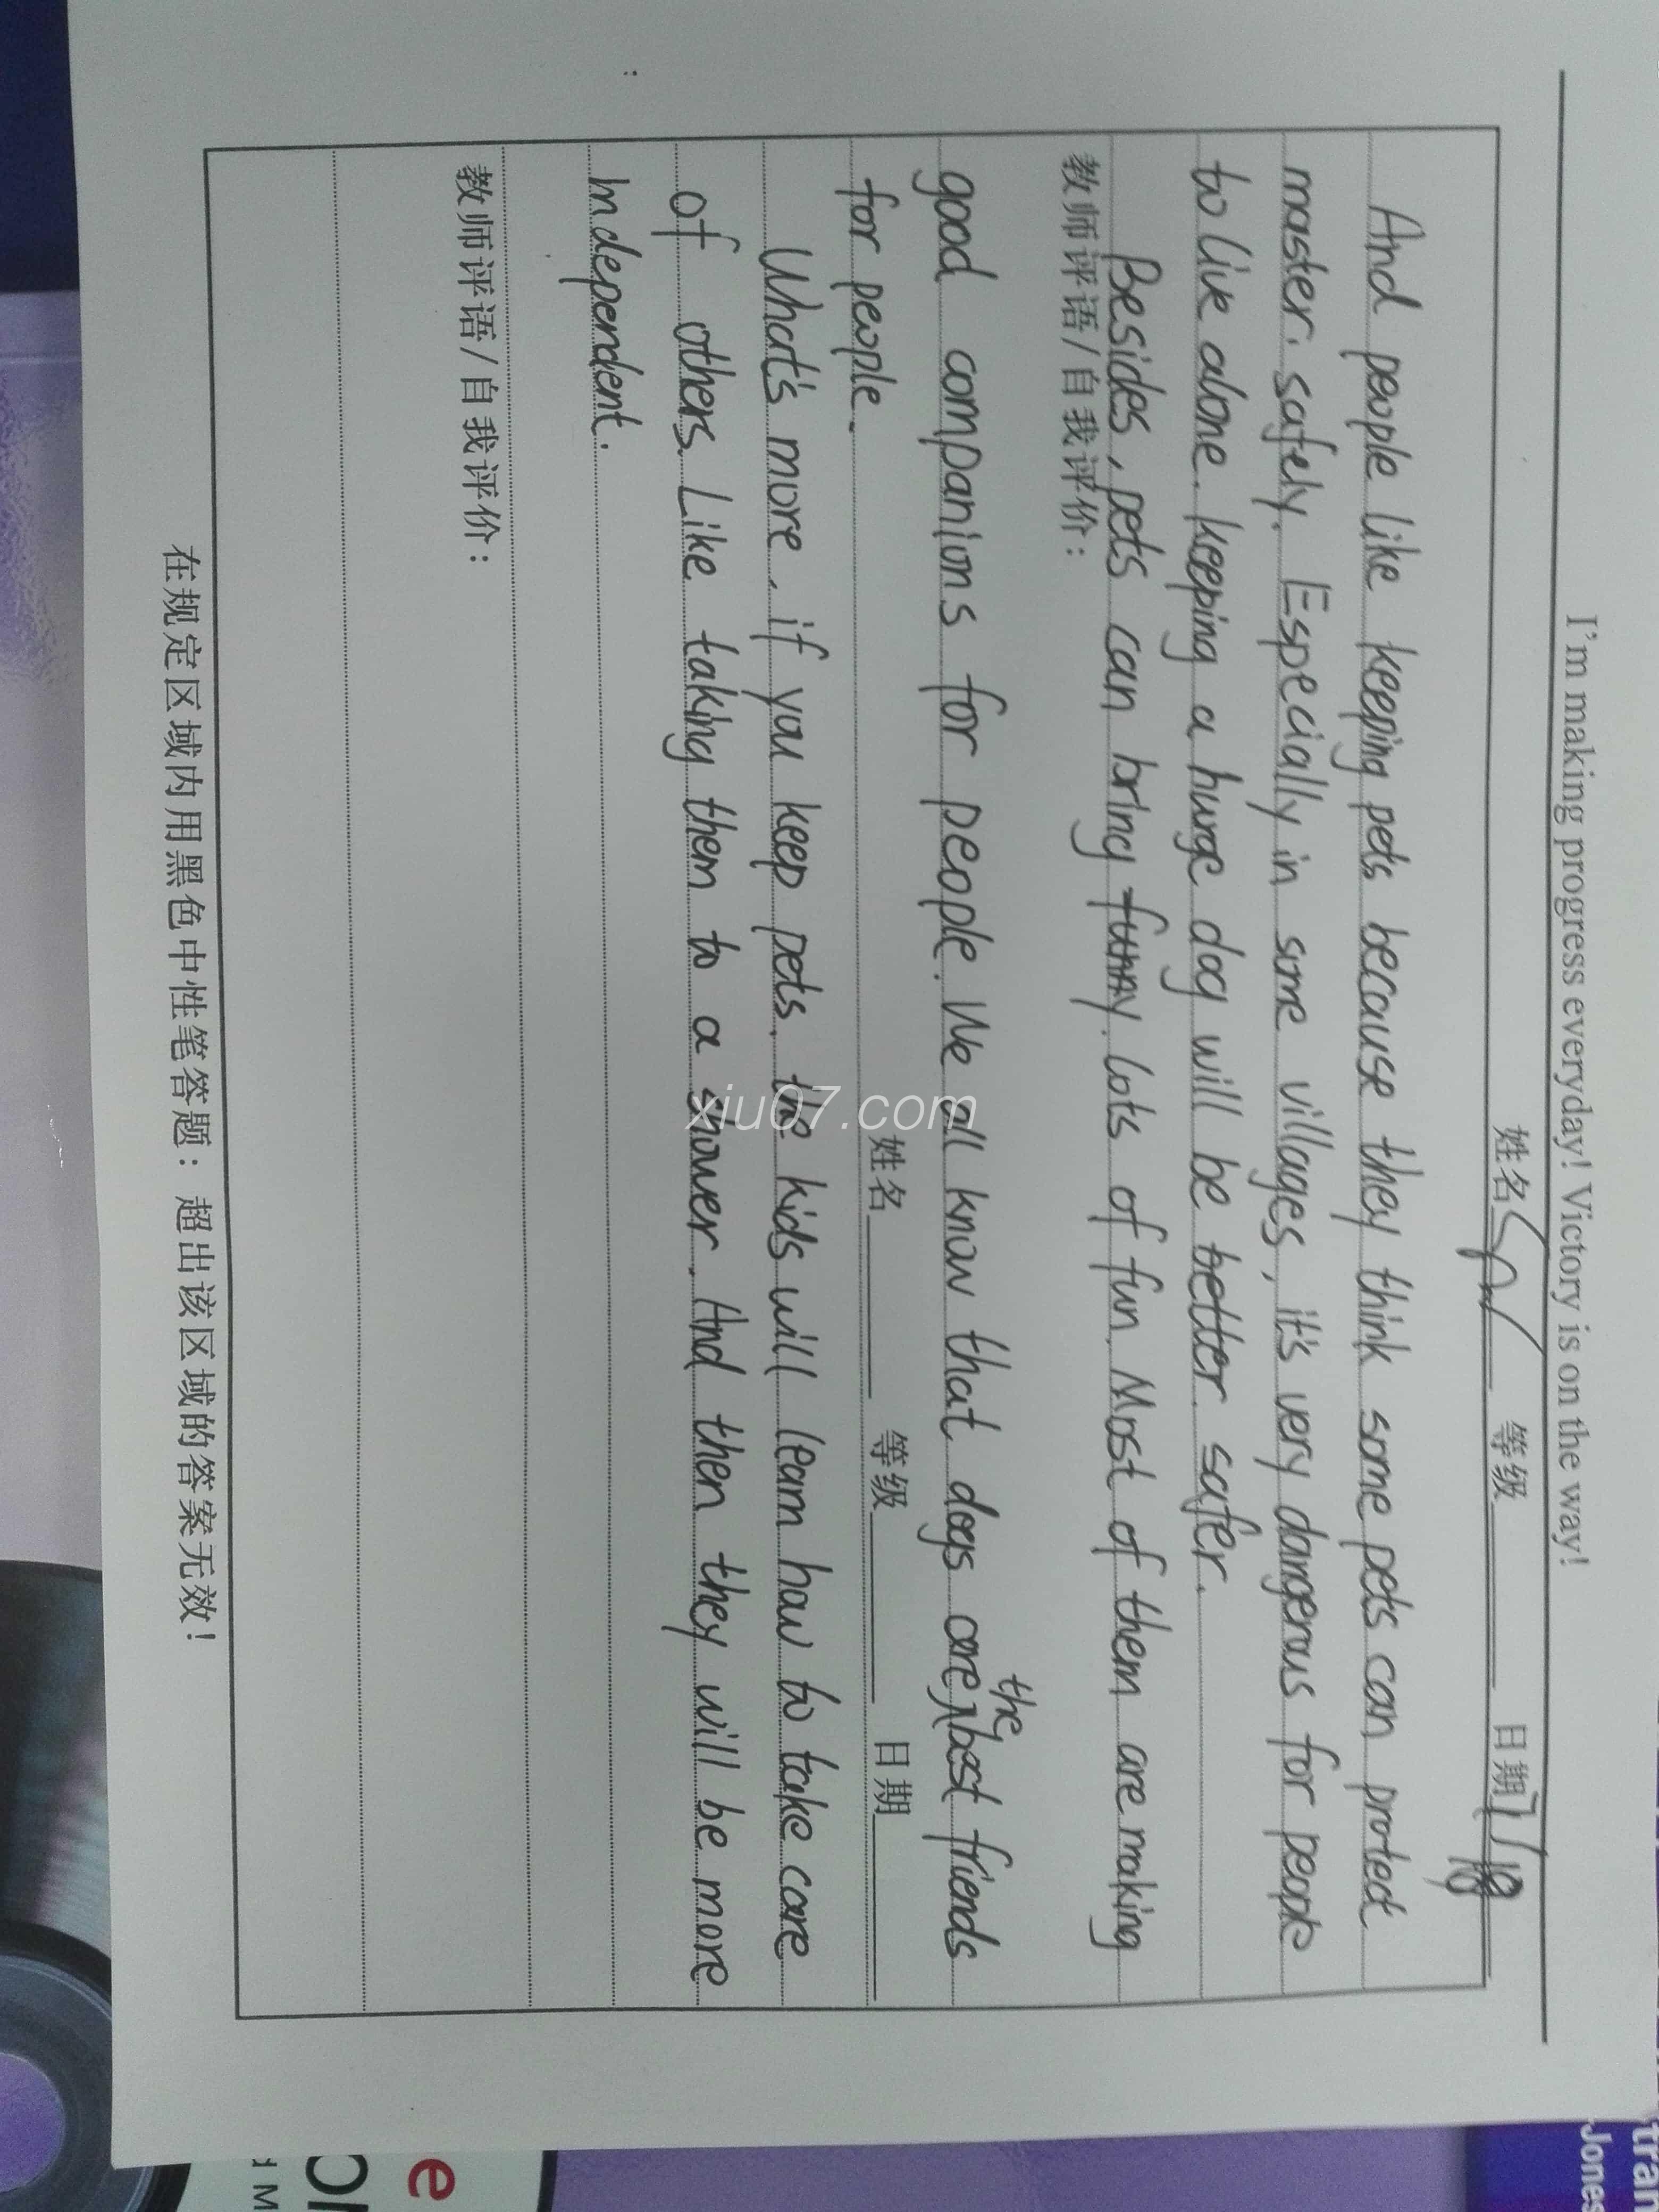 I'm making progress everyday! Victory is on the way!
姓名 等级 日期
And people like keeping pets because they think some pets can protect
master. safely. Especially in some villages, it's very dangerous for people
to live alone. keeping a hurge dog will be better safer.
Besides, pets can bring funny. lots of fun. Most of them are making
教师评语/自我评价:
good companions for people. We all know that dogs are the best friends
for people.
姓名 等级 日期
What's more, if you keep pets. the kids will learn how to take care
of others. Like taking them to a shower. And then they will be more
independent.
教师评语/自我评价:
在规定区域内用黑色中性笔答题: 超出该区域的答案无效!
xiu07.com
Jones